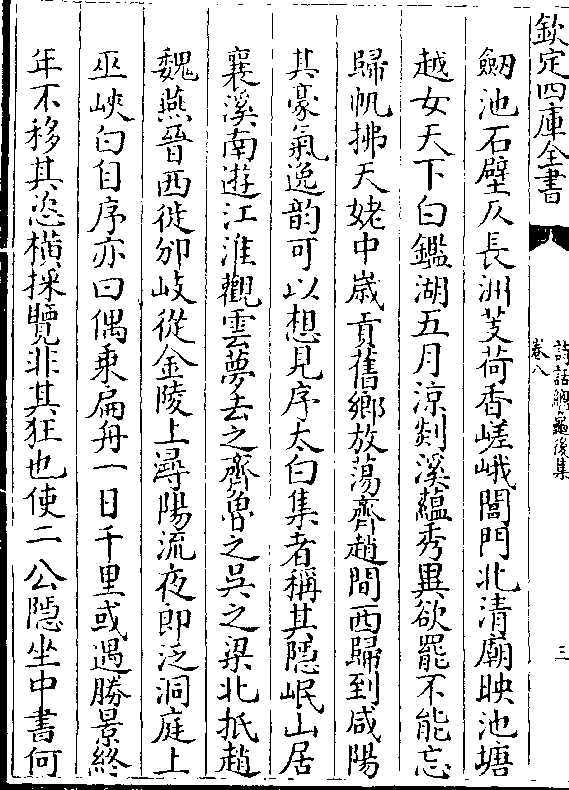 欽定四庫全書
詩話總龜後集
卷八
三
劒池石壁仄長洲芰荷香嵯峨閶門北清廟映池塘
越女天下白鑑湖五月涼剡溪蘊秀異欲罷不能忘
歸帆拂天姥中歲貢舊鄉放蕩齊趙間西歸到咸陽
其豪氣逸韵可以想見序太白集者稱其隱岷山居
襄溪南遊江淮觀雲夢去之齊魯之吳之梁北抵趙
魏燕晉西徙邠岐從金陵上潯陽流夜郎泛洞庭上
巫峽白自序亦曰偶乘扁舟一日千里或遇勝景終
年不移其恣橫採覽非其狂也使二公隱坐中書何